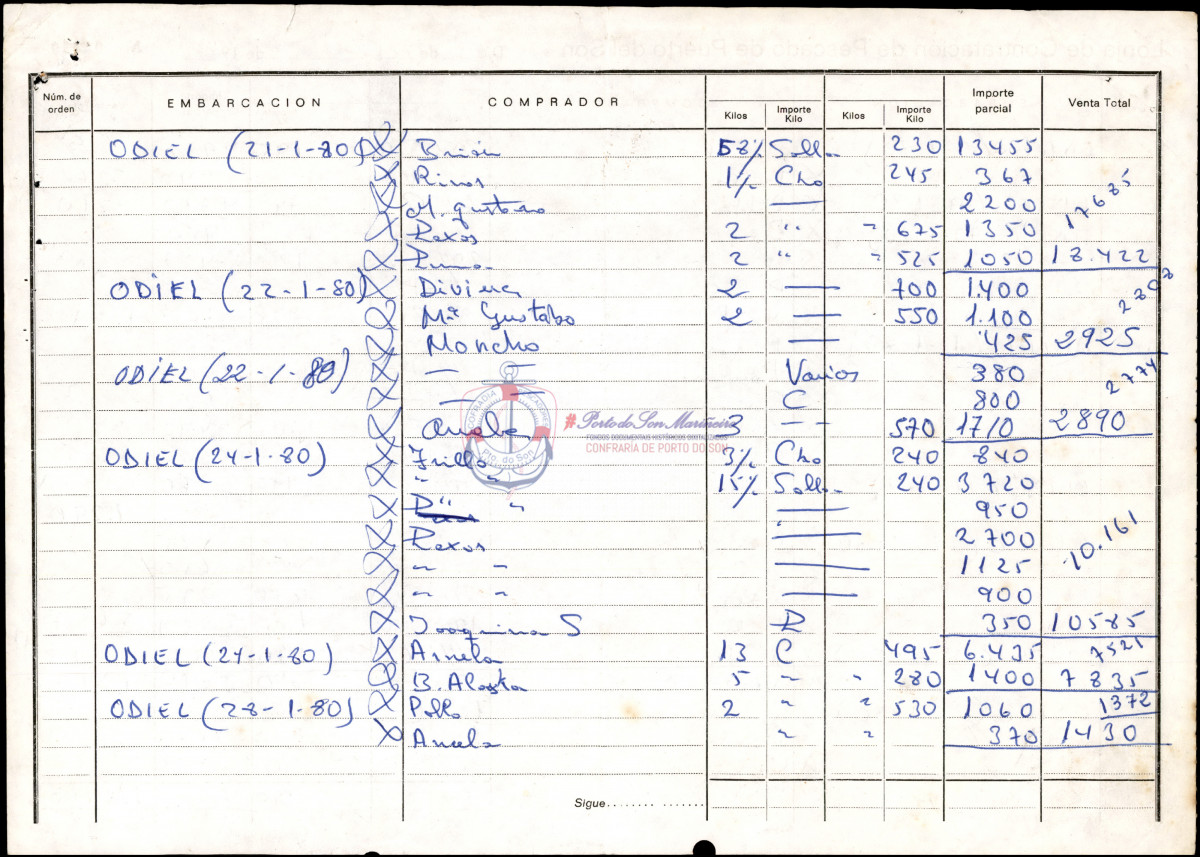 Núm. de orden EMBARCACION COMPRADOR Kilos Importe Kilo Kilos Importe Kilo Importe parcial Venta Total
ODIEL (21-1-80) Brión 58½ Solla 230 13455
Rivas 1½ Cho 245 367
M. Gustavo — 2200 17685
Rexos 2 " " 675 1350
2 " " 525 1050 18.422
ODIEL (22-1-80) Diviera 2 — 700 1.400
Mª Gustabo 2 — 550 1.100
Moncho — 425 2925
ODIEL (22-1-80) — — Varios 380 2774
— — C 800
Anela 3 - - 570 1710 2890
ODIEL (24-1-80) Frillo 3½ Cho 240 840
" " 15½ Solla 240 3720
" " — 950
Rexos — 2700 10.161
" " — 1125
" " — 900
Joaquina S R 350 10585
ODIEL (24-1-80) Anela 13 C 495 6.435 7521
B. Alaska 5 " " 280 1400 7835
ODIEL (28-1-80) Pillo 2 " " 530 1060 1372
Anela " " 370 1430
Sigue
COFRADIA PESCADORES
Pto. do Son
#Porto do Son Mariñeiro
FONDOS DOCUMENTAIS HISTÓRICOS DIGITALIZADOS
CONFRARÍA DE PORTO DO SON